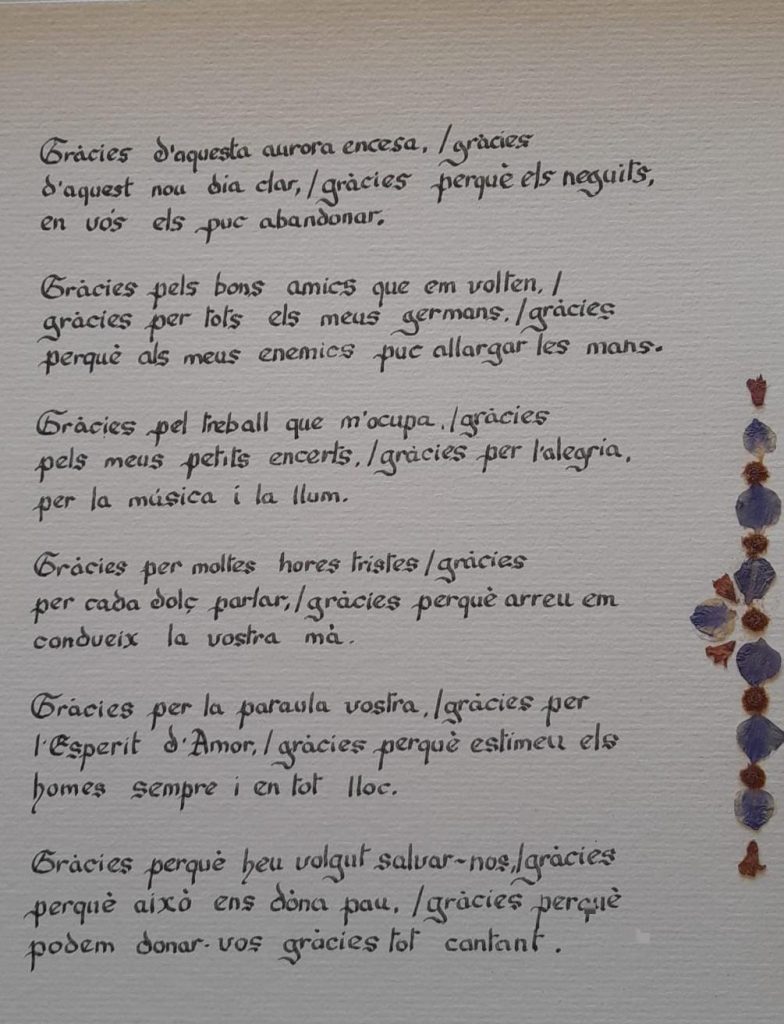 Gràcies d'aquesta aurora encesa, /gràcies
d'aquest nou dia clar, /gràcies perquè els neguits,
en vós els puc abandonar.
Gràcies pels bons amics que em volten, /
gràcies per tots els meus germans, /gràcies
perquè als meus enemics puc allargar les mans.
Gràcies pel treball que m'ocupa, /gràcies
pels meus petits encerts, /gràcies per l'alegria,
per la música i la llum.
Gràcies per moltes hores tristes /gràcies
per cada dolç parlar, /gràcies perquè arreu em
condueix la vostra mà.
Gràcies per la paraula vostra, /gràcies per
l'Esperit d'Amor, /gràcies perquè estimeu els
homes sempre i en tot lloc.
Gràcies perquè heu volgut salvar-nos, /gràcies
perquè això ens dòna pau, /gràcies perquè
podem donar-vos gràcies tot cantant.